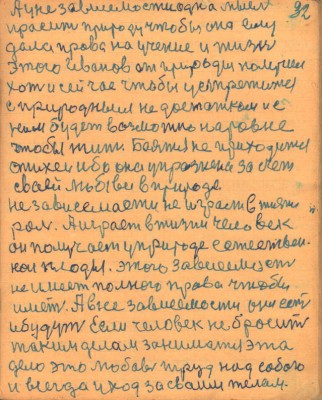 32
А у независимости одна мысл
просит природу чтобы она ему
дала права на учение и жизни
этого Иванов от природы получил
хоть и сейчас чтобы устретится
с природным недостатком и с
ним будет возможно наровне
чтобы жить. Баятся не приходится
стихеи ибо она упражнена за счет
своей любови в природе
независемасти не играет в жизни
рол. А играет в жизни человек
он получает у природе естествен
ное плоды. Этого зависемость
не имеет полного права чтобы
иметь. А в независемости они есть
и будут Если человек не бросит
таким делам заниматся эта
дело это любовь труд над собою
и всегда уход за своим телом.